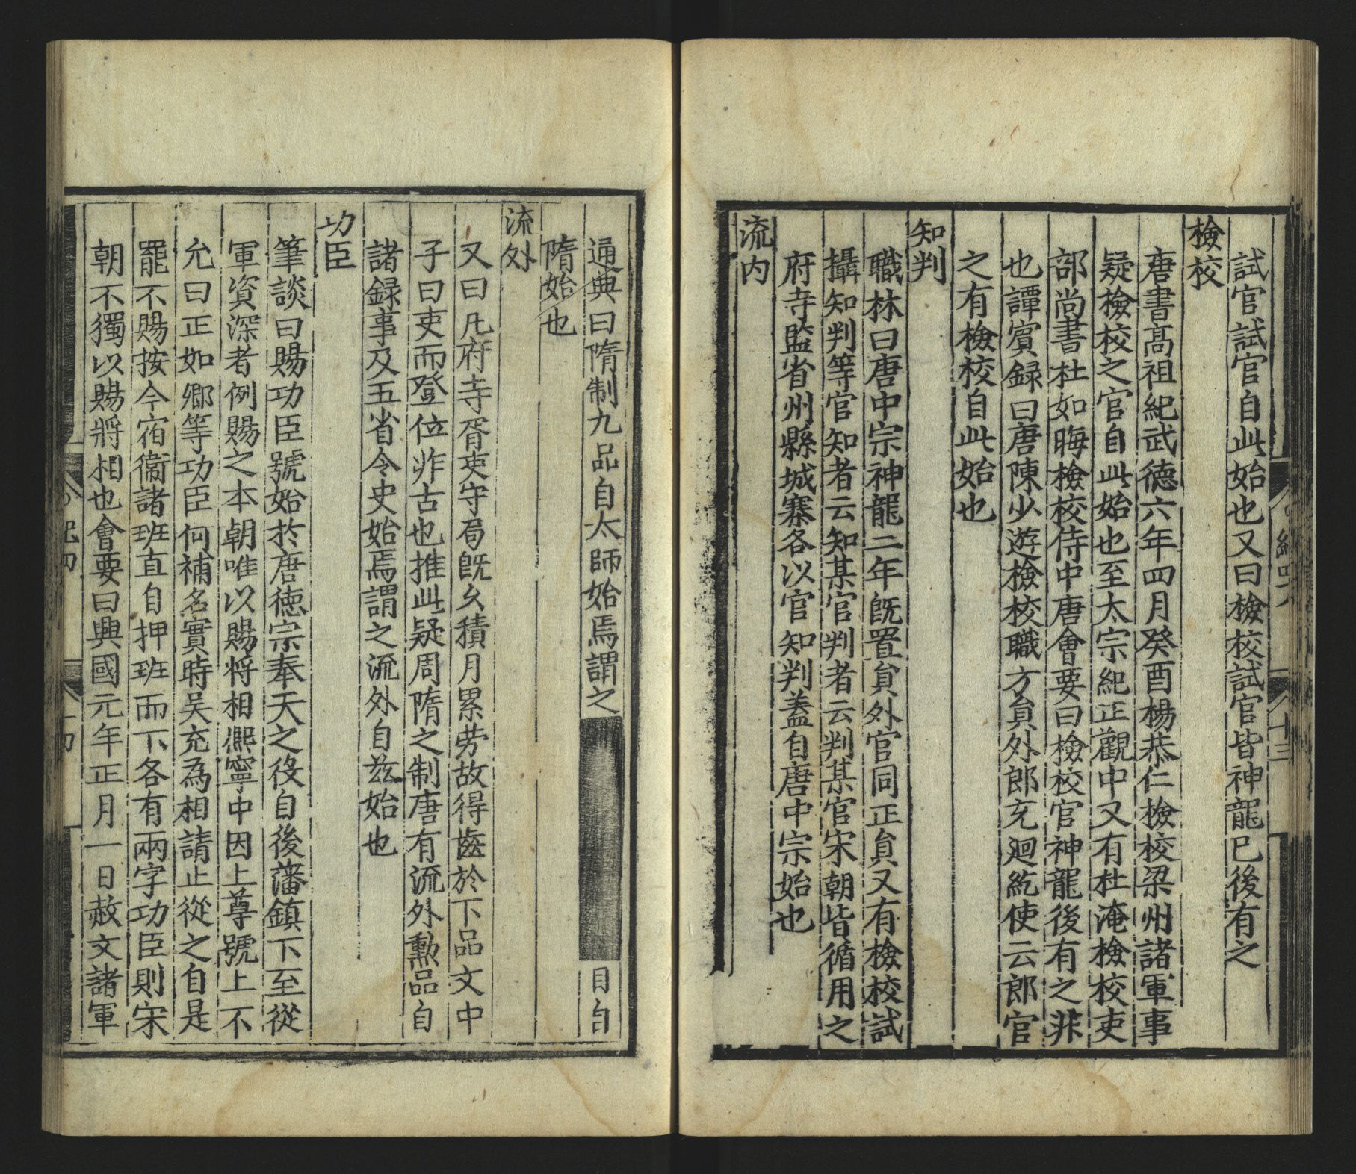 試官試官自此始也又曰檢校試官皆神龍已後有之
檢校
唐書高祖紀武德六年四月癸酉楊恭仁檢校梁州諸軍事
疑檢校之官自此始也至太宗紀正觀中又有杜淹檢校吏
部尚書杜如晦檢校侍中唐會要曰檢校官神龍後有之非
也譚賓録曰唐陳少遊檢校職方貟外郎充迴紇使云郎官
之有檢校自此始也
知判
職林曰唐中宗神龍二年旣置貟外官同正貟又有檢校試
攝知判等官知者云知某官判者云判某官宋朝皆循用之
府寺監省州縣城寨各以官知判蓋自唐中宗始也
流内
通典曰隋制九品自太師始焉謂之 目自
隋始也
流外
又曰凡府寺胥吏守局旣久積月累劳故得齒於下品文中
子曰吏而登位非古也推此疑周隋之制唐有流外勲品自
諸録事及五省令史始焉謂之流外自兹始也
功臣
筆談曰賜功臣號始於唐德宗奉天之役自後藩鎮下至從
軍資深者例賜之本朝唯以賜将相熈寧中因上尊號上不
允曰正如卿等功臣何補名實時吴充為相請止從之自是
罷不賜按今宿衞諸班直自押班而下各有兩字功臣則宋
朝不獨以賜將相也會要曰興國元年正月一日赦文諸軍